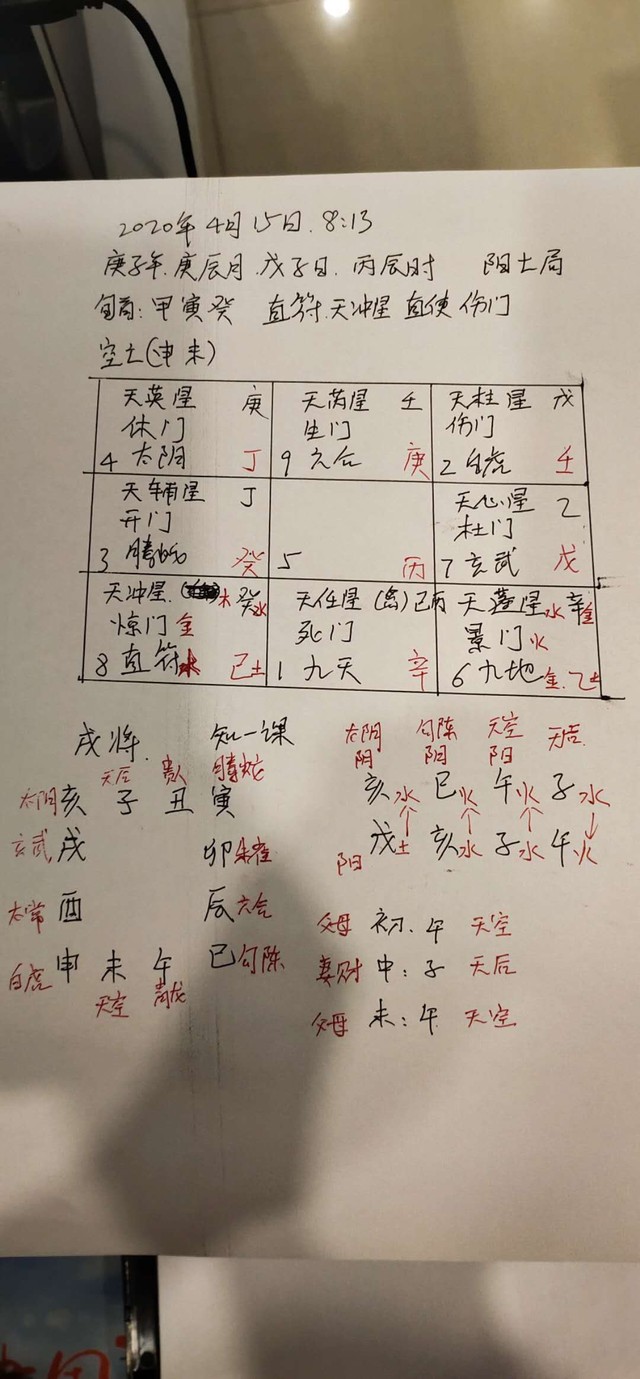 2020年4月15日. 8:13
庚子年. 庚辰月. 戊子日. 丙辰时 阳土局
旬首: 甲寅癸 直符.天冲星 直使 伤门
空土(申未)
天英星 庚 天芮星 壬 天柱星 戊
休门 生门 伤门
4 太阴 丁 9 六合 庚 2 白虎 壬
天辅星 丁 天心星 乙
开门 杜门
3 腾蛇 癸 5 丙 7 玄武 戊
天冲星. 木 癸水 天任星 (禽)己丙 天蓬星水 辛金
惊门 金 死门 景门火
8 直符 己土 1 九天 辛 6 九地 金. 乙土
戌将. 知一课 太阴 勾陈 天空 天后
天后 贵人 腾蛇 阴 阴 阳
太阴 亥 子 丑 寅 亥水 巳火 午火 子水
玄武 戌 卯 朱雀 阳 戊土 亥水 子水 午火
太常 酉 辰 六合 父母 初. 午 天空
白虎 申 未 午 巳 勾陈 妻财 中: 子 天后
天空 青龙 父母 末: 午 天空